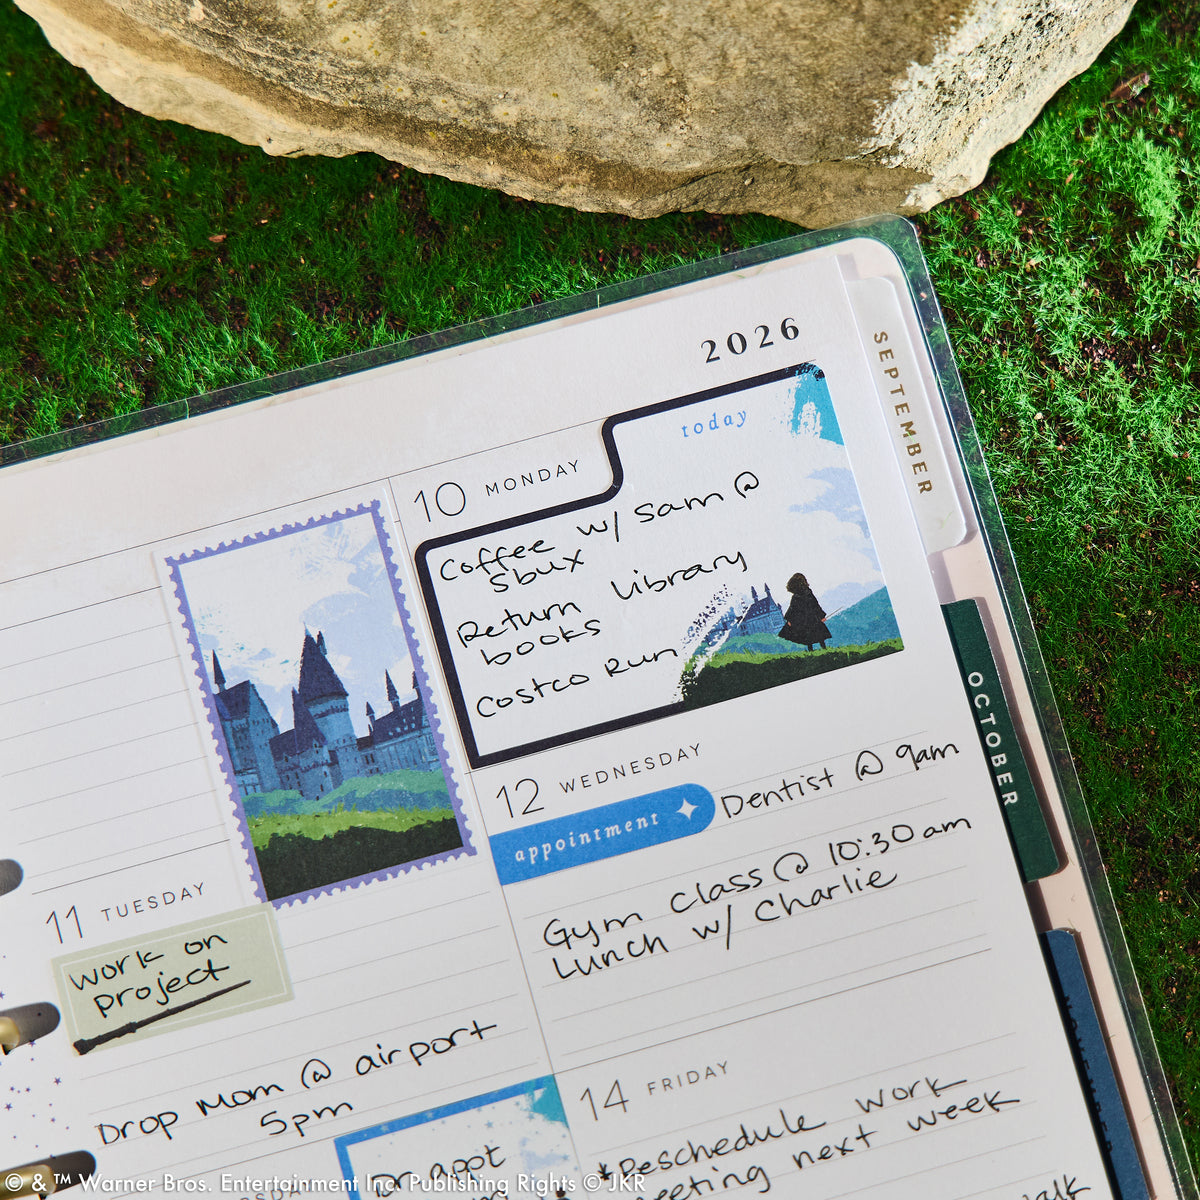 2026
SEPTEMBER
today
10 MONDAY
Coffee w/ Sam @
Sbux
Return library
books
Costco Run
OCTOBER
12 WEDNESDAY
appointment
Dentist @ 9am
Gym class @ 10:30 am
Lunch w/ Charlie
11 TUESDAY
work on
project
Drop Mom @ airport
5pm
14 FRIDAY
*Reschedule work
meeting next week
Dr appt
NOVEMBER
© & ™ Warner Bros. Entertainment Inc. Publishing Rights © JKR